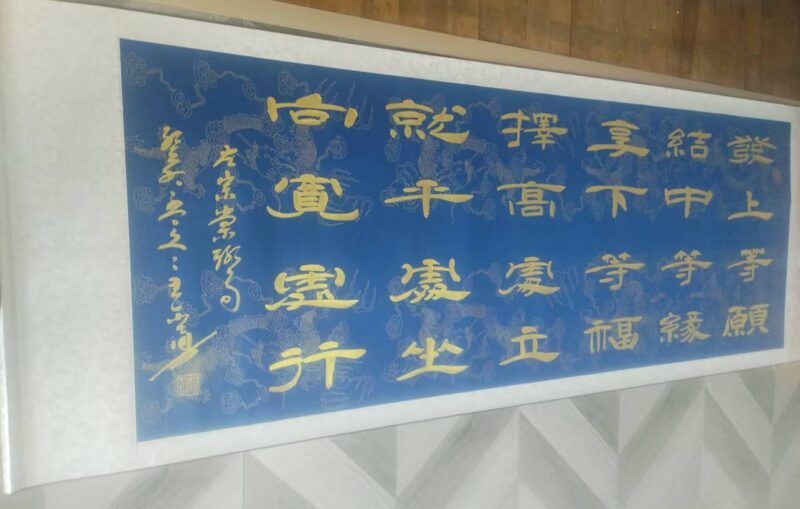 發上等願
結中等緣
享下等福
擇高處立
就平處坐
向寬處行
左宗棠聯句